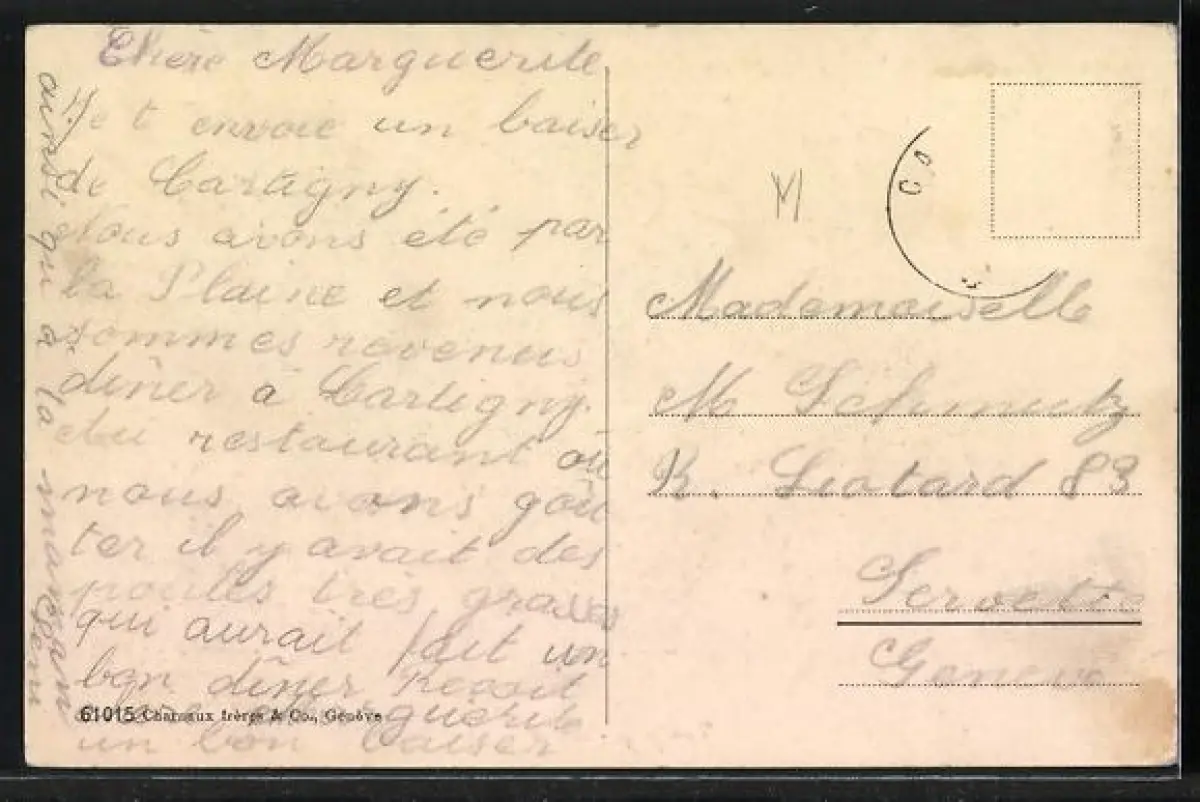 Chère Marguerite
Je t envoie un baiser
de Cartigny.
Nous avons été par
la Plaine et nous
sommes revenus
dîner à Cartigny.
du restaurant où
nous avons goû
ter il y avait des
poules très grasses
qui aurait fait un
bon dîner. Reçoit
chère Marguerite
un bon baiser
ainsi qu à ta maman
61015 Charnaux frères & Co., Genève
M
CA
Mademoiselle
M Schmutz
R. Liotard 83
Servette
Genève